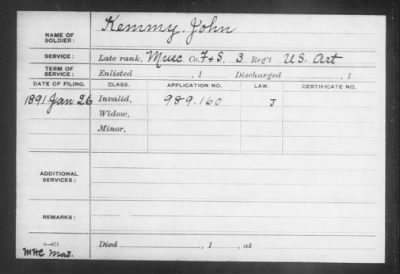 NAME OF SOLDIER: Kemmy, John
SERVICE: Late rank, Musc Co. F & S, 3 Reg't U.S. Art
TERM OF SERVICE: Enlisted , 1 Discharged , 1
DATE OF FILING. CLASS. APPLICATION NO. LAW. CERTIFICATE NO.
1891 Jan 26 Invalid, 989.160 J
Widow,
Minor,
ADDITIONAL SERVICES:
REMARKS:
Died , 1 , at